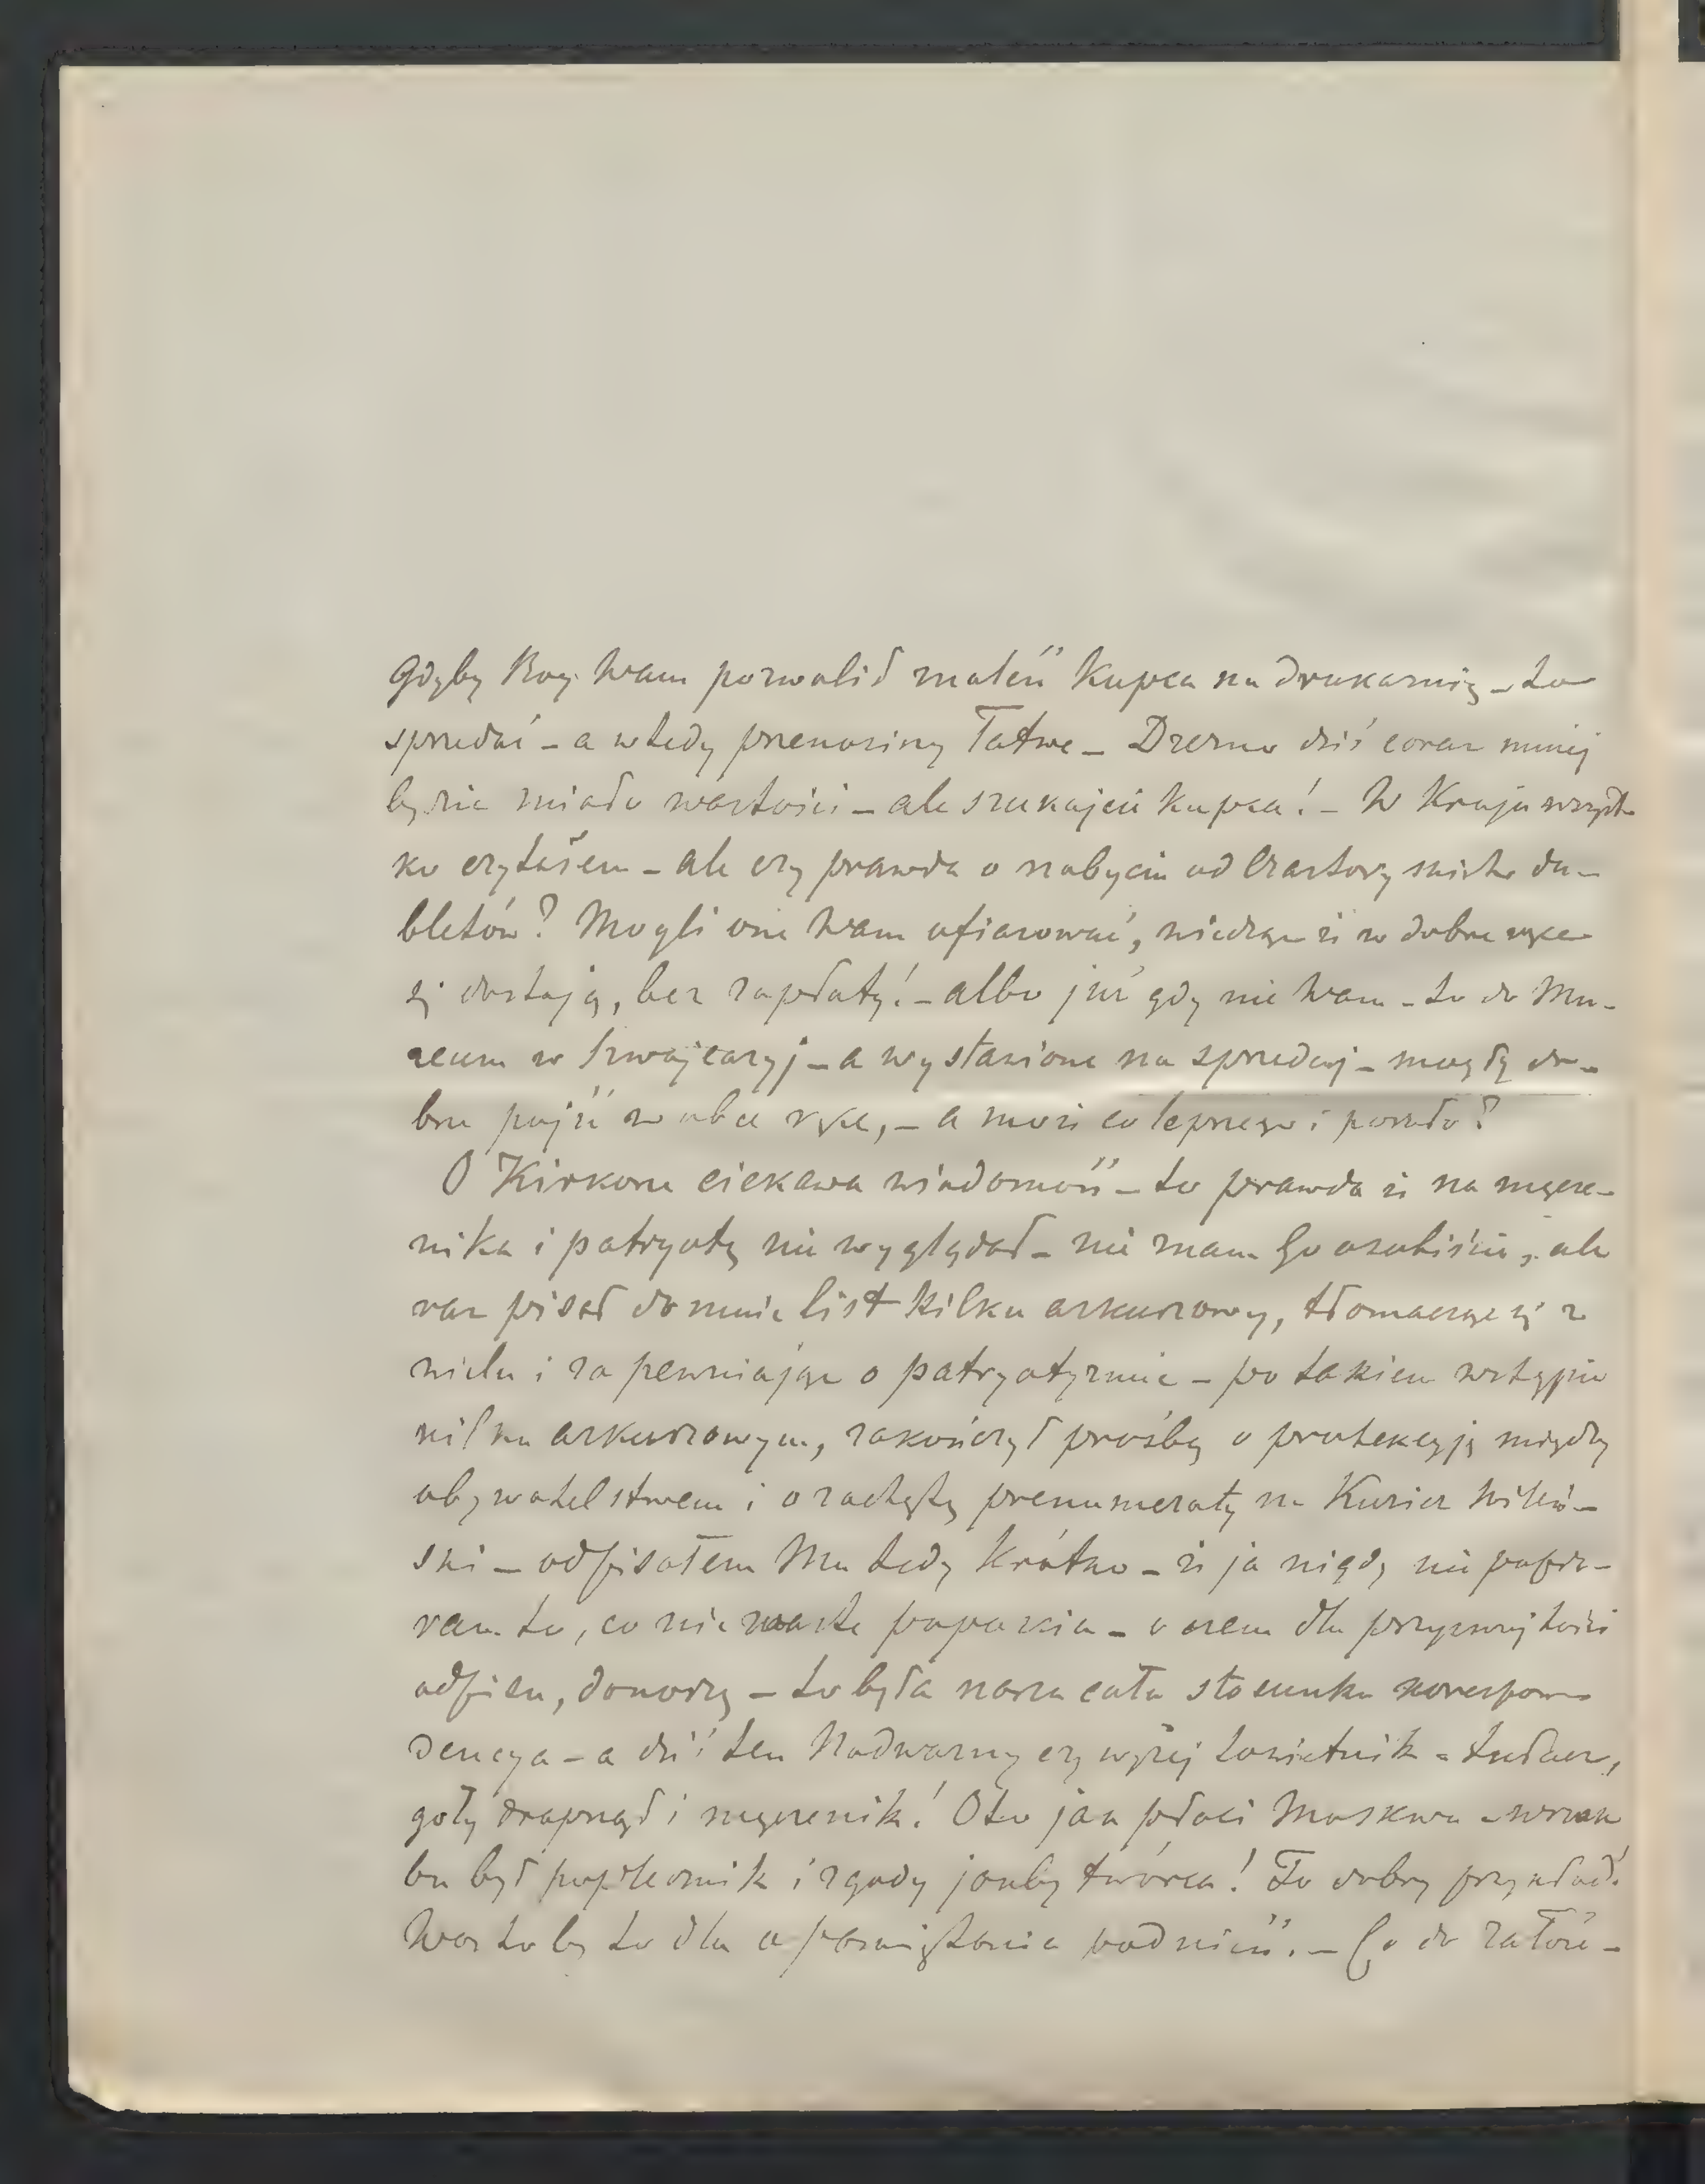 Gdyby Bóg Wam pozwolił znaleść kupca na drukarnię – to
sprzedać – a wtedy przenosiny łatwe – Drezno dziś coraz mniej
będzie miało wartości – ale szukajcie kupca! – W Kraju wszyst-
ko czytałem – ale czy prawda o nabyciu od Czartoryskich du-
bletów? Mogli one Wam ofiarować, wiedząc iż w dobre ręce
się dostają, bez zapłaty! – albo już gdy nie Wam – to do Mu-
zeum w Szwajcaryj – a wystawione na sprzedaj – mogłą do-
bra pójść w obce ręce, – a może co lepszego i poszło?
O Kirkorze ciekawa wiadomość – to prawda iż na męcze-
nika i patryotę nie wyglądał – nie znam Go osobiście, ale
raz pisał do mnie list kilku arkuszowy, tłomacząc się z
wielu i zapewniając o patryotyzmie – po takiem wstępie
kilku arkuszowym, zakończył prośbą o protekcyją między
obywatelstwem i o zachętę prenumeraty na Kurier Wileń-
ski – odpisałem Mu tedy krótko – iż ja nigdy nie popie-
ram to, co nie warte poparcia – o czem dla przyzwojtości
odpisu, donoszę – to była nasza cała stosunku korespon-
dencya – a dziś ten Nadworny czy wyżej Sowietnik – tułacz,
goły drapnął i męczenik! Oto jak płaci Moskwa – wszak
bu był pupilkomik i zgody jakby twórca! To dobry przykład!
Warto by to dla opamiętania podnieść. – Co do załóż-